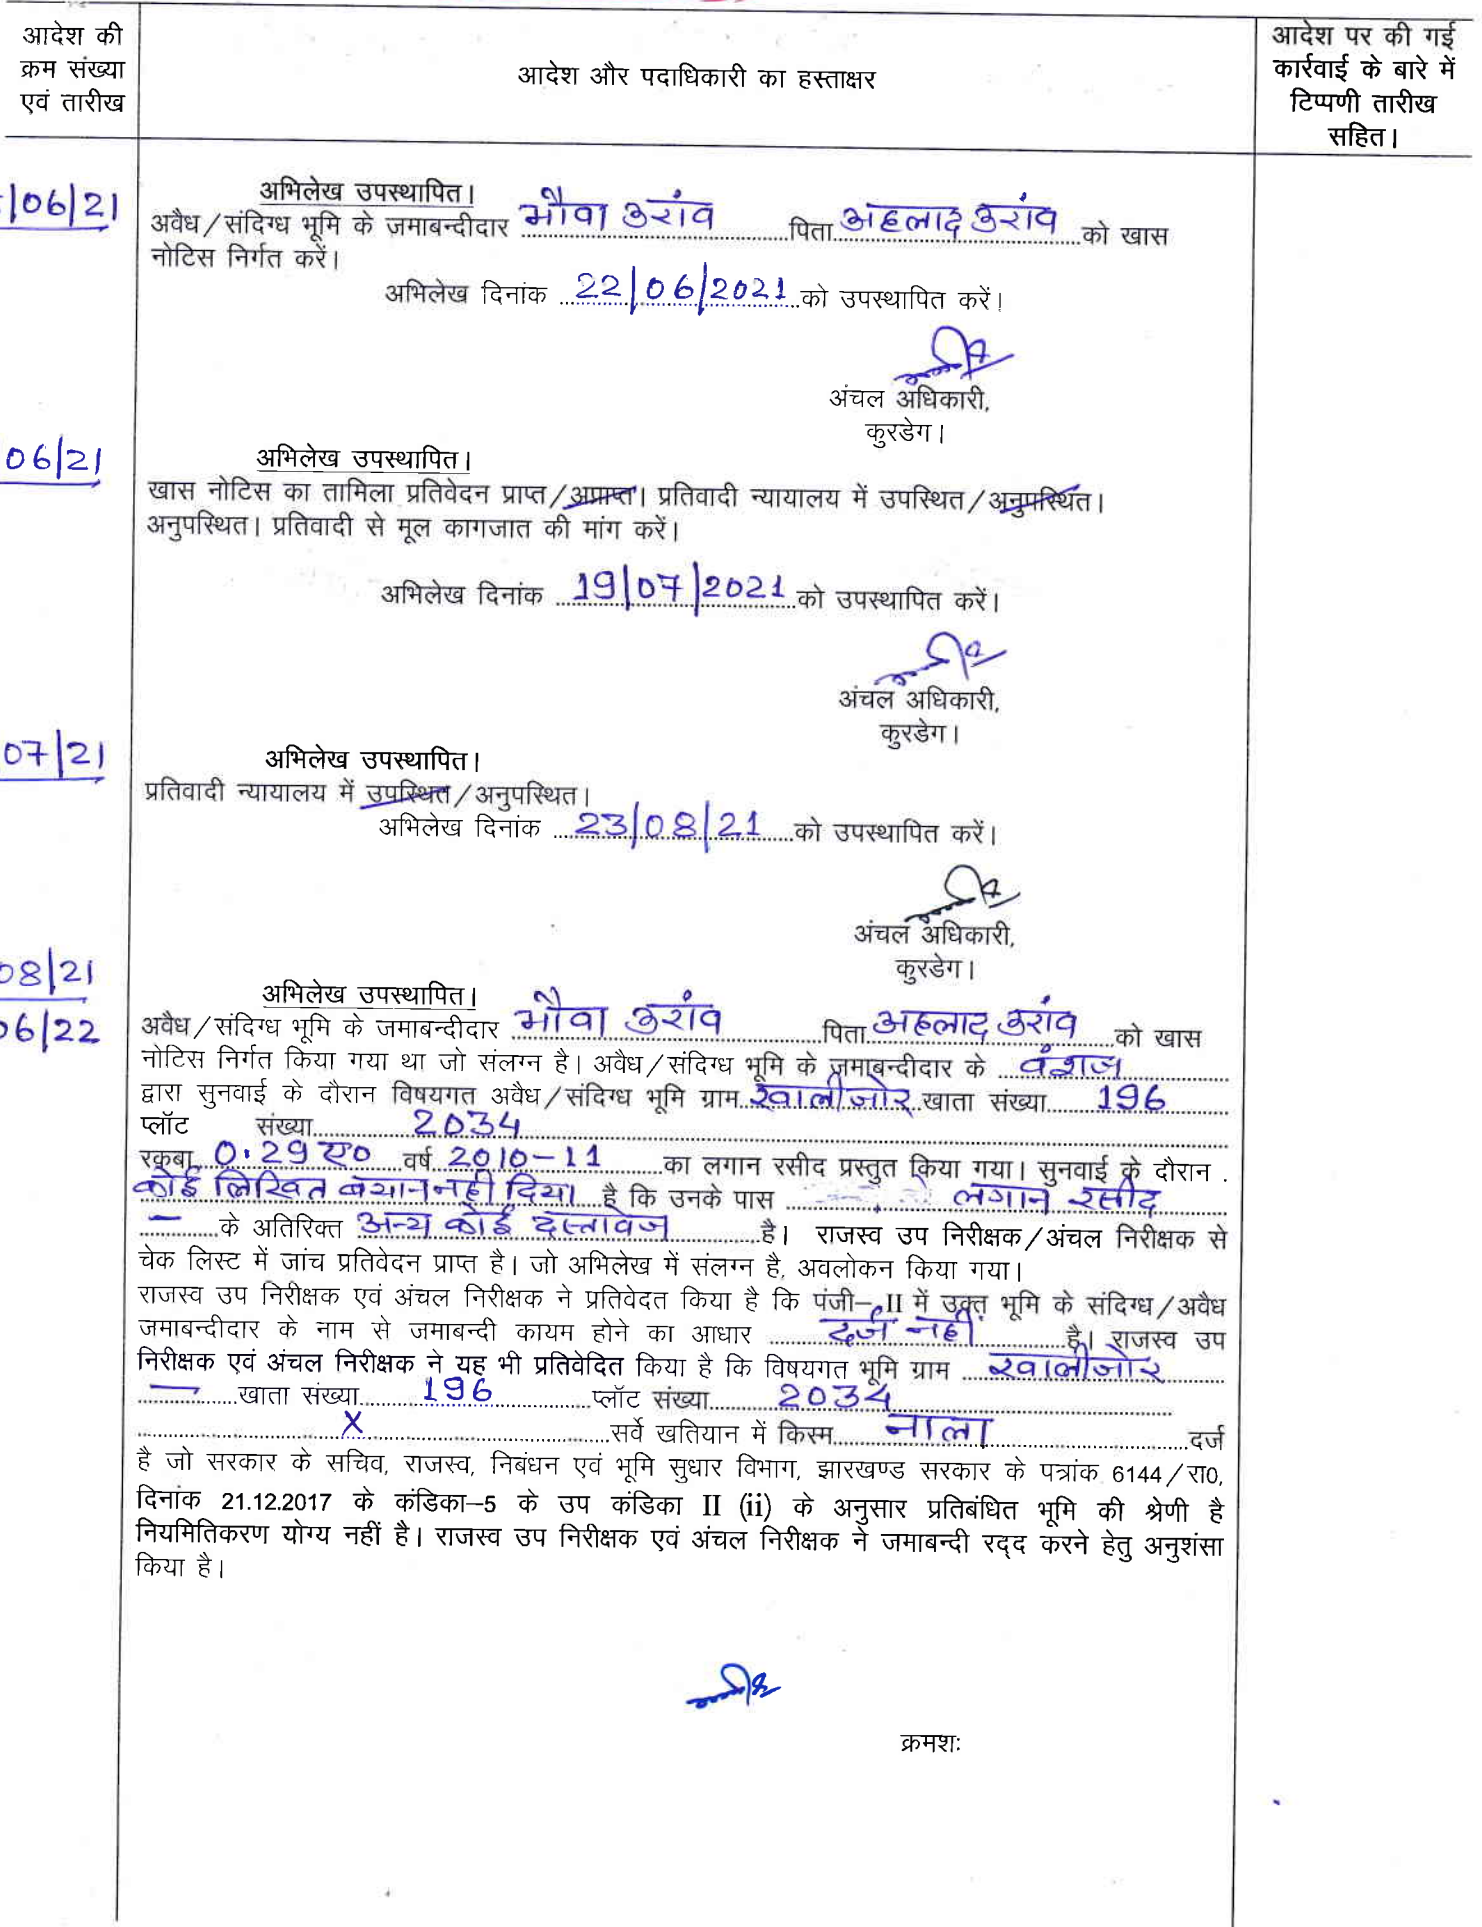 आदेश की
क्रम संख्या
एवं तारीख
आदेश और पदाधिकारी का हस्ताक्षर
आदेश पर की गई
कार्रवाई के बारे में
टिप्पणी तारीख
सहित।
/06/21
अभिलेख उपस्थापित।
अवैध/संदिग्ध भूमि के जमाबन्दीदार भौवा उरांव पिता अहलाद उरांव को खास
नोटिस निर्गत करें।
अभिलेख दिनांक 22/06/2021 को उपस्थापित करें।
अंचल अधिकारी,
कुरडेग।
06/21
अभिलेख उपस्थापित।
खास नोटिस का तामिला प्रतिवेदन प्राप्त/अप्राप्त। प्रतिवादी न्यायालय में उपस्थित/अनुपस्थित।
अनुपस्थित। प्रतिवादी से मूल कागजात की मांग करें।
अभिलेख दिनांक 19/07/2021 को उपस्थापित करें।
अंचल अधिकारी,
कुरडेग।
07/21
अभिलेख उपस्थापित।
प्रतिवादी न्यायालय में उपस्थित/अनुपस्थित।
अभिलेख दिनांक 23/08/21 को उपस्थापित करें।
अंचल अधिकारी,
कुरडेग।
08/21
अभिलेख उपस्थापित।
06/22
अवैध/संदिग्ध भूमि के जमाबन्दीदार भौवा उरांव पिता अहलाद उरांव को खास
नोटिस निर्गत किया गया था जो संलग्न है। अवैध/संदिग्ध भूमि के जमाबन्दीदार के वंशज
द्वारा सुनवाई के दौरान विषयगत अवैध/संदिग्ध भूमि ग्राम खालीजोर खाता संख्या 196
प्लॉट संख्या 2034
रकबा 0.29 ए० वर्ष 2010-11 का लगान रसीद प्रस्तुत किया गया। सुनवाई के दौरान .
कोई लिखित बयान नहीं दिया है कि उनके पास लगान रसीद
— के अतिरिक्त अन्य कोई दस्तावेज है। राजस्व उप निरीक्षक/अंचल निरीक्षक से
चेक लिस्ट में जांच प्रतिवेदन प्राप्त है। जो अभिलेख में संलग्न है, अवलोकन किया गया।
राजस्व उप निरीक्षक एवं अंचल निरीक्षक ने प्रतिवेदत किया है कि पंजी–II में उक्त भूमि के संदिग्ध/अवैध
जमाबन्दीदार के नाम से जमाबन्दी कायम होने का आधार दर्ज नहीं है। राजस्व उप
निरीक्षक एवं अंचल निरीक्षक ने यह भी प्रतिवेदित किया है कि विषयगत भूमि ग्राम खालीजोर
— खाता संख्या 196 प्लॉट संख्या 2034
X सर्वे खतियान में किस्म नाला दर्ज
है जो सरकार के सचिव, राजस्व, निबंधन एवं भूमि सुधार विभाग, झारखण्ड सरकार के पत्रांक 6144/रा0,
दिनांक 21.12.2017 के कंडिका–5 के उप कंडिका II (ii) के अनुसार प्रतिबंधित भूमि की श्रेणी है
नियमितिकरण योग्य नहीं है। राजस्व उप निरीक्षक एवं अंचल निरीक्षक ने जमाबन्दी रद्द करने हेतु अनुशंसा
किया है।
क्रमशः